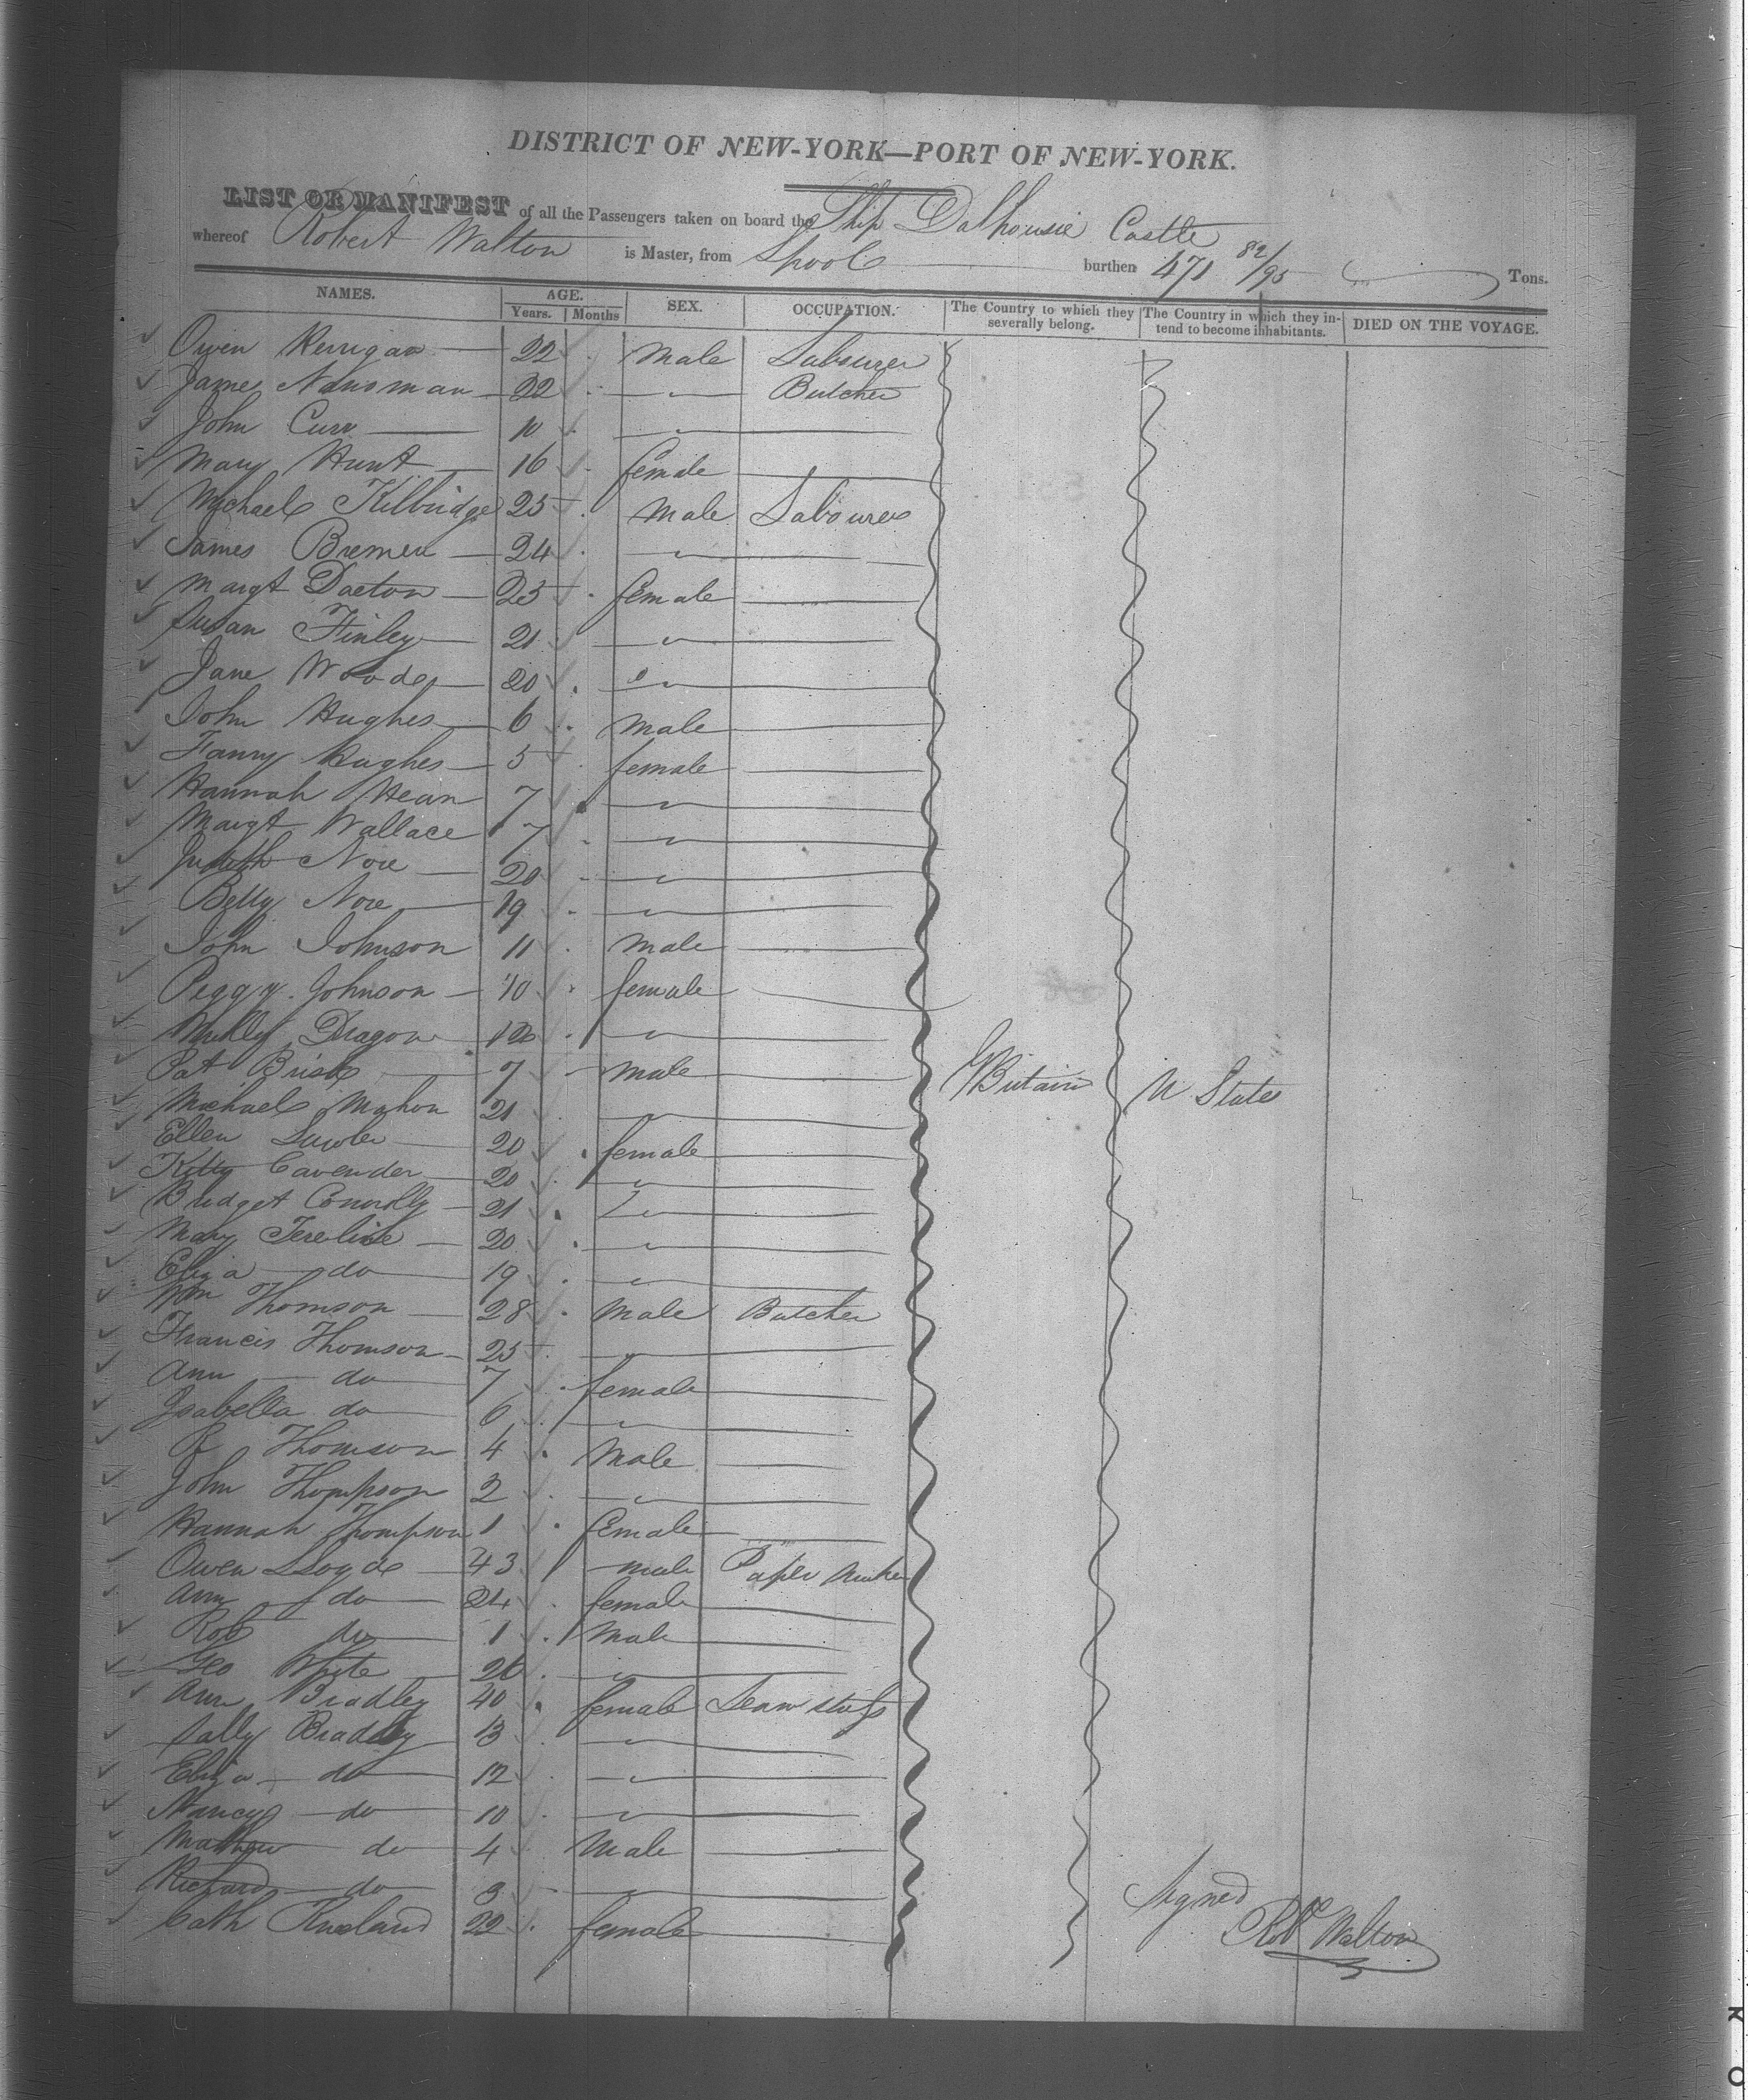 DISTRICT OF NEW-YORK—PORT OF NEW-YORK.
LIST OR MANIFEST of all the Passengers taken on board the Ship Dalhousie Castle
whereof Robert Walton is Master, from Lpool burthen 471 82/95 Tons.
NAMES. AGE. Years. Months SEX. OCCUPATION. The Country to which they severally belong. The Country in which they intend to become inhabitants. DIED ON THE VOYAGE.
Owen Kerrigan 22 Male Labourer
James 22 " Butcher
John Curr 10 "
Mary Hunt 16 female
Michael Kilbridge 25 Male Labourer
James Bremen 24 "
Margt Daeton 23 female
Susan Finley 21 "
Jane Woods 20 "
John Hughes 6 Male
Fanny Hughes 5 female
Hannah Hean 7 "
Margt Wallace 7 "
Judith Noie 20 "
Betty Noie 19 "
John Johnson 11 Male
Peggy Johnson 10 female
Dragon 12 "
Pat Brisk 7 male
Michael Mahon 21 "
Ellen Lawler 20 female
Kitty Cavender 20 "
Bridget Connolly 21 "
Mary 20 "
Eliza do 19 "
GBritain U States
Wm Thomson 28 Male Butcher
Francis Thomson 25 "
Ann do 7 female
Isabella do 6 "
R Thomson 4 Male
John Thompson 2 "
Hannah Thompson 1 female
Owen Lloyde 43 male Paper Maker
Ann do 24 female
Rob do 1 Male
Geo White 26 "
Ann Bradley 40 female
Sally Bradley 13 "
Eliza do 12 "
Nancy do 10 "
Mathew do 4 Male
Richard do 3 "
Cath Kneeland 22 female
Signed
Robt Walton